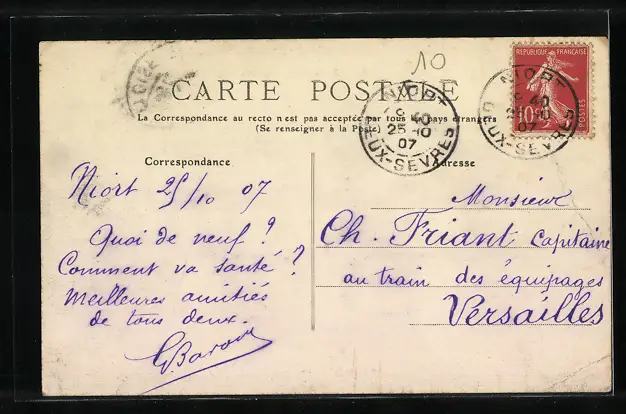 10
CARTE POSTALE
La Correspondance au recto n'est pas acceptée par tous les pays étrangers
(Se renseigner à la Poste)
REPUBLIQUE FRANÇAISE
10c
POSTES
NIORT
40
25-10
07
DEUX-SEVRES
NIORT
40
25-10
07
DEUX-SEVRES
Correspondance
Niort 25/10 07
Quoi de neuf ?
Comment va santé ?
Meilleures amitiés
de tous deux.
Adresse
Monsieur
Ch. Friant Capitaine
au train des équipages
Versailles